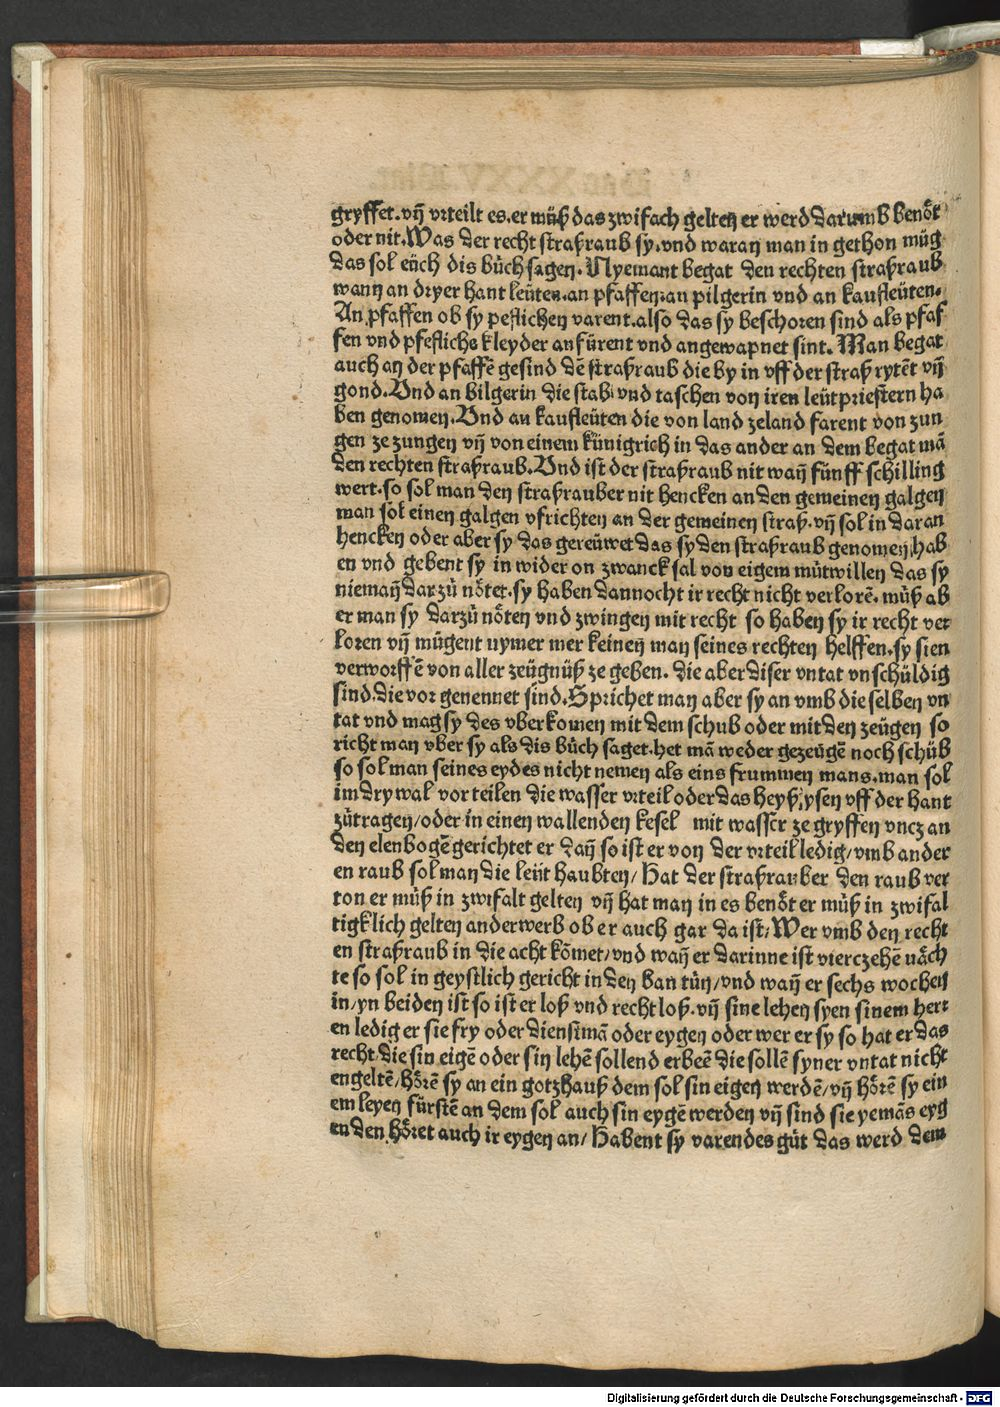 gryffet. vñ vrteilt es. er můß das zwifach gelten er werd darumb benöt
oder nit. Was der recht straßraub sy. vnd waran man in gethon müg
das sol eüch dis bůch sagen. Nyemant begat den rechten straßraub
wann an dryer hant leüten. an pfaffen: an pilgerin vnd an kaufleüten.
An pfaffen ob sy pfeflichen varent. also das sy beschoren sind als pfaf
fen vnd pfeflichs kleyder an fürent vnd angewapnet sint. Man begat
auch an der pfaffē gesind dē straßraub die by in vff der straß rytēt vñ
gond. Vnd an bilgerin die stab vnd taschen von iren leütpriestern ha
ben genomen. Vnd an kaufleüten die von land ze land farent von zun
gen ze zungen vñ von einem künigrich in das ander an dem begat mā
den rechten straßraub. Vnd ist der straßraub nit wañ fünff schilling
wert. so sol man den straßrauber nit hencken an den gemeinen galgen
man sol einen galgen vfrichten an der gemeinen straß. vñ sol in daran
hencken oder aber sy das gereüwet das sy den straßraub genomen hab
en vnd gebent sy in wider on zwancksal von eigem můtwillen das sy
niemañ darzů nötet. sy haben dannocht ir recht nicht verlorē. můß ab
er man sy darzů nöten vnd zwingen mit recht so haben sy ir recht ver
loren vñ mügent nymer mer keinen man seines rechten helffen. sy sien
verworffē von aller zeügnüß ze geben. die aber diser vntat vnschüldig
sind. die vor genennet sind. Sprichet man aber sy an vmb die selben vn
tat vnd mag sy des vberkomen mit dem schub oder mit den zeügen so
richt man vber sy als dis bůch saget. het mā weder gezeügē noch schüb
so sol man seines eydes nicht nemen als eins frummen mans. man sol
im dry wal vor teilen die wasser vrteil oder das heyß ysen vff der hant
zůtragen/ oder in einen wallenden kesel mit wasser ze gryffen vncz an
den elenbogē gerichtet er dañ so ist er von der vrteil ledig/ vmb ander
en raub sol man die leüt haubten/ Hat der straßrauber den raub ver
ton er můß in zwifalt gelten vñ hat man in es benöt er můß in zwifal
tigklich gelten anderwerb ob er auch gar da ist/ Wer vmb den recht
en straßraub in die acht kōmet/ vnd wañ er darinne ist vierczehē näch
te so sol in geystlich gericht in den ban tůn/ vnd wañ er sechs wochen
in/ yn beiden ist so ist er loß vnd recht loß. vñ sine lehen syen sinem herr
en ledig er sie fry oder dienstmā oder eygen oder wer er sy so hat er das
recht. die sin eigē oder sin lehē sollend erbeē die sollē syner vntat nicht
engeltē/ hörē sy an ein gotzhauß dem sol sin eigen werdē/ vñ hörē sy ein
em leyen fürstē an dem sol auch sin eygē werden vñ sind sie yemās eyg
en den höret auch ir eygen an/ Habent sy varendes gůt das werd dem
Digitalisierung gefördert durch die Deutsche Forschungsgemeinschaft - DFG